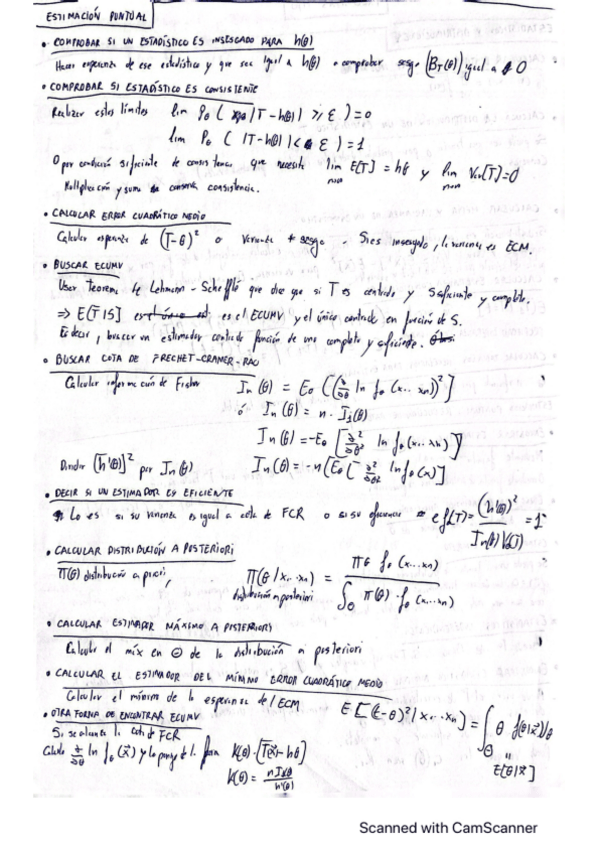 ESTIMACIÓN PUNTUAL
• COMPROBAR SI UN ESTADÍSTICO ES INSESGADO PARA h(θ)
Hacer esperanza de ese estadístico y que sea igual a h(θ) o comprobar sesgo (B_T(θ)) igual a 0
• COMPROBAR SI ESTADÍSTICO ES CONSISTENTE
Realizar estos límites lim P_θ ( |T - h(θ)| ≥ ε ) = 0
lim P_θ ( |T - h(θ)| < ε ) = 1
O por condición suficiente de consistencia que necesita lim E[T] = hθ y lim Var[T] = 0
Multiplicación y suma conserva consistencia.
• CALCULAR ERROR CUADRÁTICO MEDIO
Calcular esperanza de (T - θ)² o Varianza + sesgo. Si es insesgado, la varianza es ECM.
• BUSCAR ECUMV
Usar Teorema de Lehmann - Scheffé que dice que si T es centrado y S suficiente y completo.
⇒ E(T|S) es el ECUMV y el único centrado en función de S.
Es decir, buscar un estimador centrado función de uno completo y suficiente.
• BUSCAR COTA DE FRECHET-CRAMER-RAO
Calcular información de Fisher I_n(θ) = E_θ[(∂/∂θ ln f_θ(x...x_n))²]
ó I_n(θ) = n · I_1(θ)
I_n(θ) = -E_θ[∂²/∂θ² ln f_θ(x₁...x_n)]
Dividir (h'(θ))² por I_n(θ) I_n(θ) = -n[E_θ[∂²/∂θ² ln f_θ(x)]
• DECIR SI UN ESTIMADOR ES EFICIENTE
Lo es si su varianza es igual a cota de FCR o si su eficiencia ef(T) = (h'(θ))² / I_n(θ) V[T] = 1
• CALCULAR DISTRIBUCIÓN A POSTERIORI
Π(θ) distribución a priori, Π(θ/x₁...x_n) = Πθ f_θ(x₁...x_n) / ∫_Θ Π(θ) · f_θ(x₁...x_n)
distribución a posteriori
• CALCULAR ESTIMADOR MÁXIMO A POSTERIORI
Calcular el máx en Θ de la distribución a posteriori
• CALCULAR EL ESTIMADOR DEL MÍNIMO ERROR CUADRÁTICO MEDIO
Calcular el mínimo de la esperanza del ECM E[(t-θ)²/x₁...x_n] = ∫_Θ θ f(θ|x⃗)dθ
E[θ|x⃗]
• OTRA FORMA DE ENCONTRAR ECUMV
Si se alcanza la cota de FCR
Calculo ∂/∂θ ln f_θ(x⃗) y lo pongo de la forma K(θ)·(T(x⃗) - hθ)
K(θ) = n I₁(θ) / h'(θ)
Scanned with CamScanner